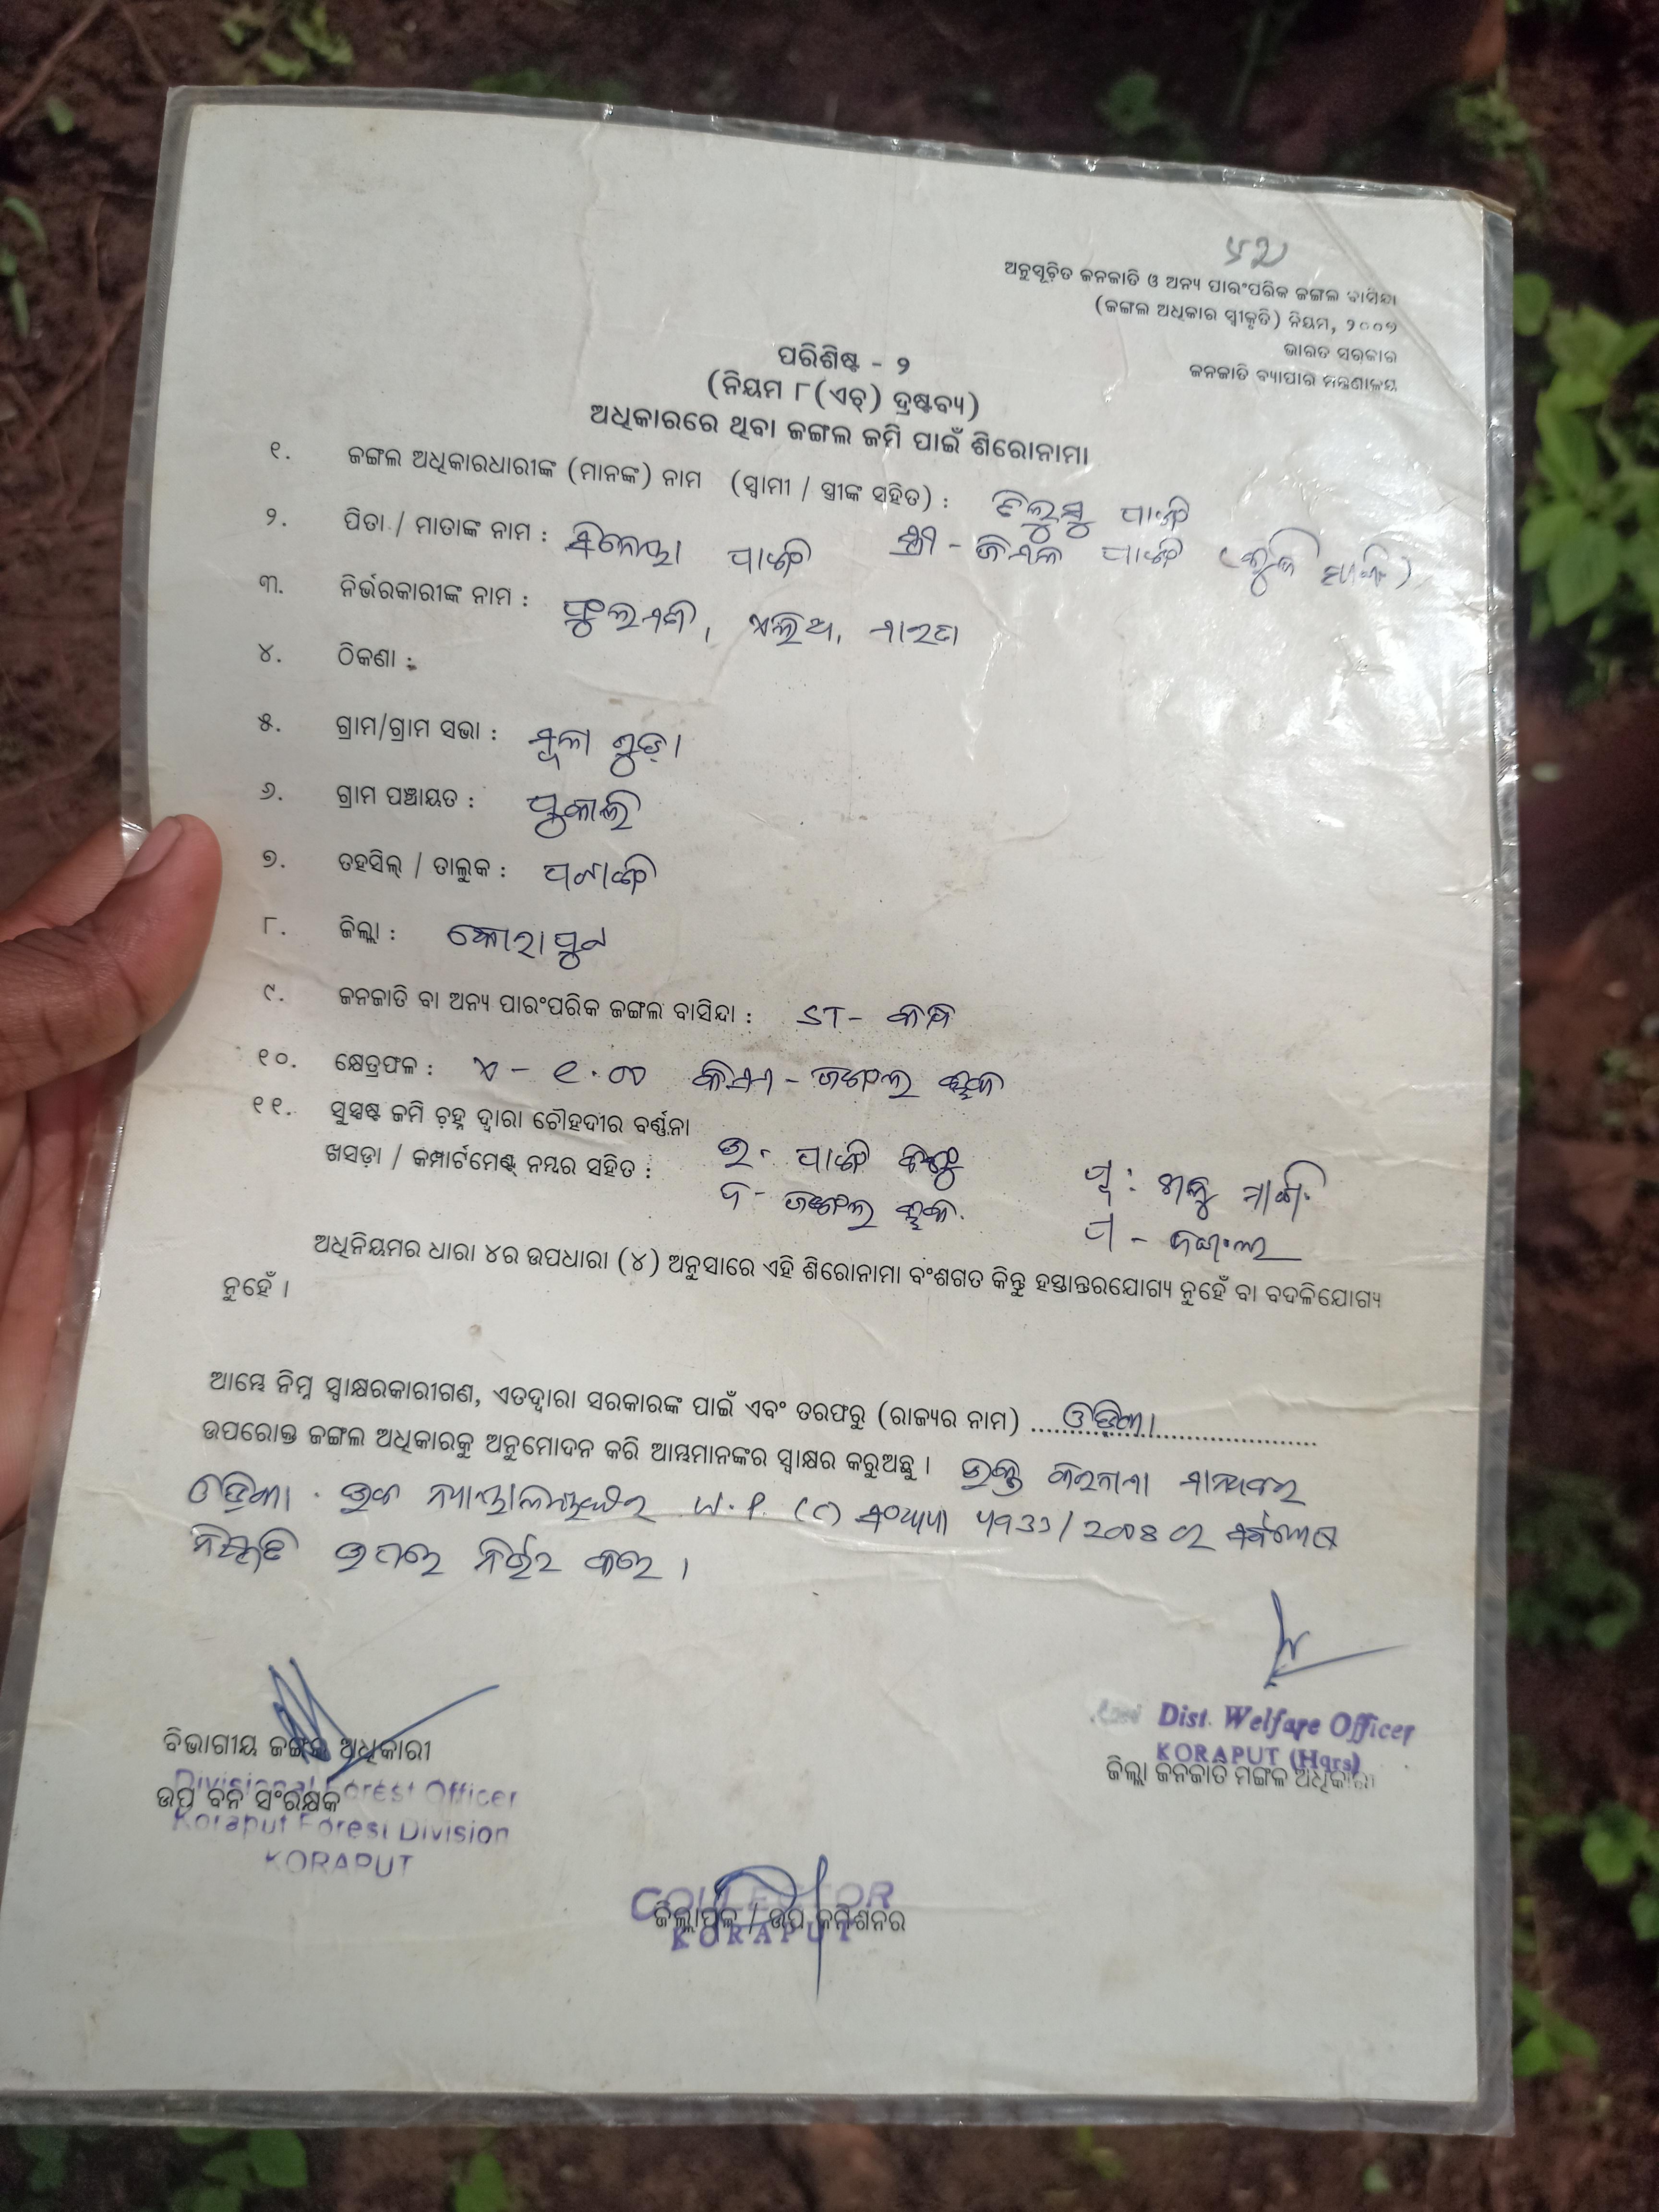 ୪୬
ଅନୁସୂଚିତ ଜନଜାତି ଓ ଅନ୍ୟ ପାରଂପରିକ ଜଙ୍ଗଲ ବାସିନ୍ଦା
(ଜଙ୍ଗଲ ଅଧିକାର ସ୍ୱୀକୃତି) ନିୟମ, ୨୦୦୭
ଭାରତ ସରକାର
ଜନଜାତି ବ୍ୟାପାର ମନ୍ତ୍ରଣାଳୟ
ପରିଶିଷ୍ଟ - ୨
(ନିୟମ ୮(ଏଚ୍) ଦ୍ରଷ୍ଟବ୍ୟ)
ଅଧିକାରରେ ଥିବା ଜଙ୍ଗଲ ଜମି ପାଇଁ ଶିରୋନାମା
୧. ଜଙ୍ଗଲ ଅଧିକାରଧାରୀଙ୍କ (ମାନଙ୍କ) ନାମ (ସ୍ୱାମୀ / ସ୍ତ୍ରୀଙ୍କ ସହିତ) :
୨. ପିତା / ମାତାଙ୍କ ନାମ : ସ୍ତ୍ରୀ -
୩. ନିର୍ଭରକାରୀଙ୍କ ନାମ : ଫୁଲମଣି,
୪. ଠିକଣା :
୫. ଗ୍ରାମ/ଗ୍ରାମ ସଭା : ଗୁଡ଼ା
୬. ଗ୍ରାମ ପଞ୍ଚାୟତ : ପୁକାଲି
୭. ତହସିଲ୍ / ତାଲୁକ : ପଟାଙ୍ଗି
୮. ଜିଲ୍ଲା : କୋରାପୁଟ
୯. ଜନଜାତି ବା ଅନ୍ୟ ପାରଂପରିକ ଜଙ୍ଗଲ ବାସିନ୍ଦା : ST - କନ୍ଧ
୧୦. କ୍ଷେତ୍ରଫଳ : ଏ - ୧.୦୦ କିସମ - ଜଙ୍ଗଲ ବ୍ଲକ
୧୧. ସୁସ୍ପଷ୍ଟ ଜମି ଚିହ୍ନ ଦ୍ୱାରା ଚୌହଦୀର ବର୍ଣ୍ଣନା
ଖସଡ଼ା / କମ୍ପାର୍ଟମେଣ୍ଟ୍ ନମ୍ବର ସହିତ : ଉ - ପାଙ୍ଗି ପୂ :
ଦ - ଜଙ୍ଗଲ ବ୍ଲକ. ପ - ଜଙ୍ଗଲ
ଅଧିନିୟମର ଧାରା ୪ର ଉପଧାରା (୪) ଅନୁସାରେ ଏହି ଶିରୋନାମା ବଂଶଗତ କିନ୍ତୁ ହସ୍ତାନ୍ତରଯୋଗ୍ୟ ନୁହେଁ ବା ବଦଳିଯୋଗ୍ୟ
ନୁହେଁ ।
ଆମ୍ଭେ ନିମ୍ନ ସ୍ୱାକ୍ଷରକାରୀଗଣ, ଏତଦ୍ୱାରା ସରକାରଙ୍କ ପାଇଁ ଏବଂ ତରଫରୁ (ରାଜ୍ୟର ନାମ) ..... ଓଡ଼ିଶା .....
ଉପରୋକ୍ତ ଜଙ୍ଗଲ ଅଧିକାରକୁ ଅନୁମୋଦନ କରି ଆମ୍ଭମାନଙ୍କର ସ୍ୱାକ୍ଷର କରୁଅଛୁ । ଉକ୍ତ ମାନ୍ୟବର
ଓଡ଼ିଶା ଉଚ୍ଚ ନ୍ୟାୟାଳୟଙ୍କର W.P (C) ସଂଖ୍ୟା ର ସର୍ବଶେଷ
ନିଷ୍ପତ୍ତି ଉପରେ ନିର୍ଭର କରେ ।
ବିଭାଗୀୟ ଜଙ୍ଗଲ ଅଧିକାରୀ
ଉପ ବନ ସଂରକ୍ଷକ
Divisional Forest Officer
Koraput Forest Division
KORAPUT
Dist. Welfare Officer
KORAPUT (Hqrs)
ଜିଲ୍ଲା ଜନଜାତି ମଙ୍ଗଳ ଅଧିକାରୀ
COLLECTOR
ଜିଲ୍ଲାପାଳ / ଉପ କମିଶନର
KORAPUT